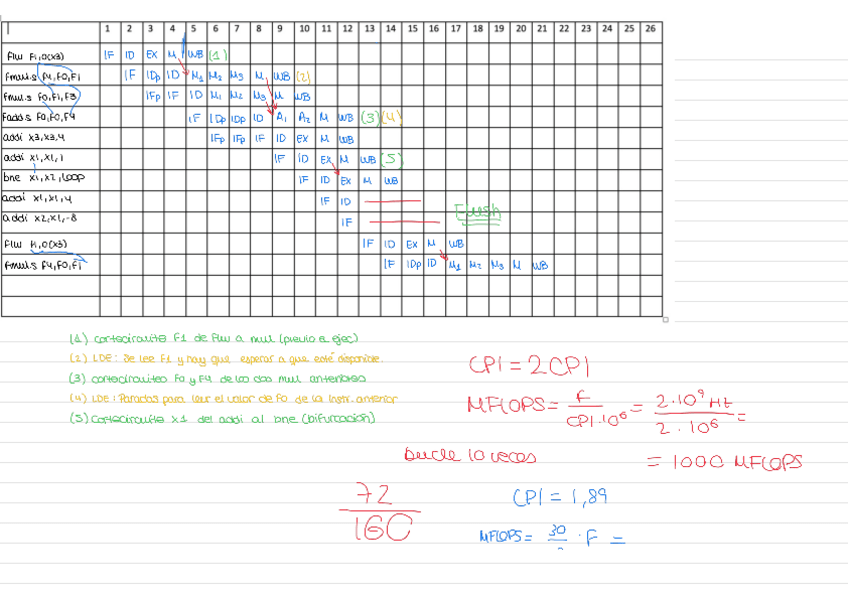 1 2 3 4 5 6 7 8 9 10 11 12 13 14 15 16 17 18 19 20 21 22 23 24 25 26
flw F1,0(x3) IF ID EX M WB (1)
fmul.s F4,F0,F1 IF IDp ID M1 M2 M3 M WB (2)
fmul.s F0,F1,F3 IFp IF ID M1 M2 M3 M WB
fadd.s F0,F0,F4 IF IDp IDp ID A1 A2 M WB (3) (4)
addi x3,x3,4 IFp IFp IF ID EX M WB
addi x1,x1,1 IF ID EX M WB (5)
bne x1,x2,loop IF ID EX M WB
addi x1,x1,4 IF ID
addi x2,x1,-8 IF
Flush
flw F1,0(x3) IF ID EX M WB
fmul.s F4,F0,F1 IF IDp ID M1 M2 M3 M WB
(1) cortocircuito F1 de Flw a mul (previo a ejec)
(2) LDE: Se lee F1 y hay que esperar a que esté disponible.
(3) cortocircuitos F0 y F4 de los dos mul anteriores
(4) LDE: Paradas para leer el valor de F0 de la instr. anterior
(5) Cortocircuito x1 del addi al bne (bifurcación)
CPI = 2 CPI
MFLOPS = F / CPI·10^6 = 2·10^9 Hz / 2·10^6 =
Bucle 10 veces
= 1000 MFLOPS
72 / 160
CPI = 1,89
MFLOPS = 30 · F =